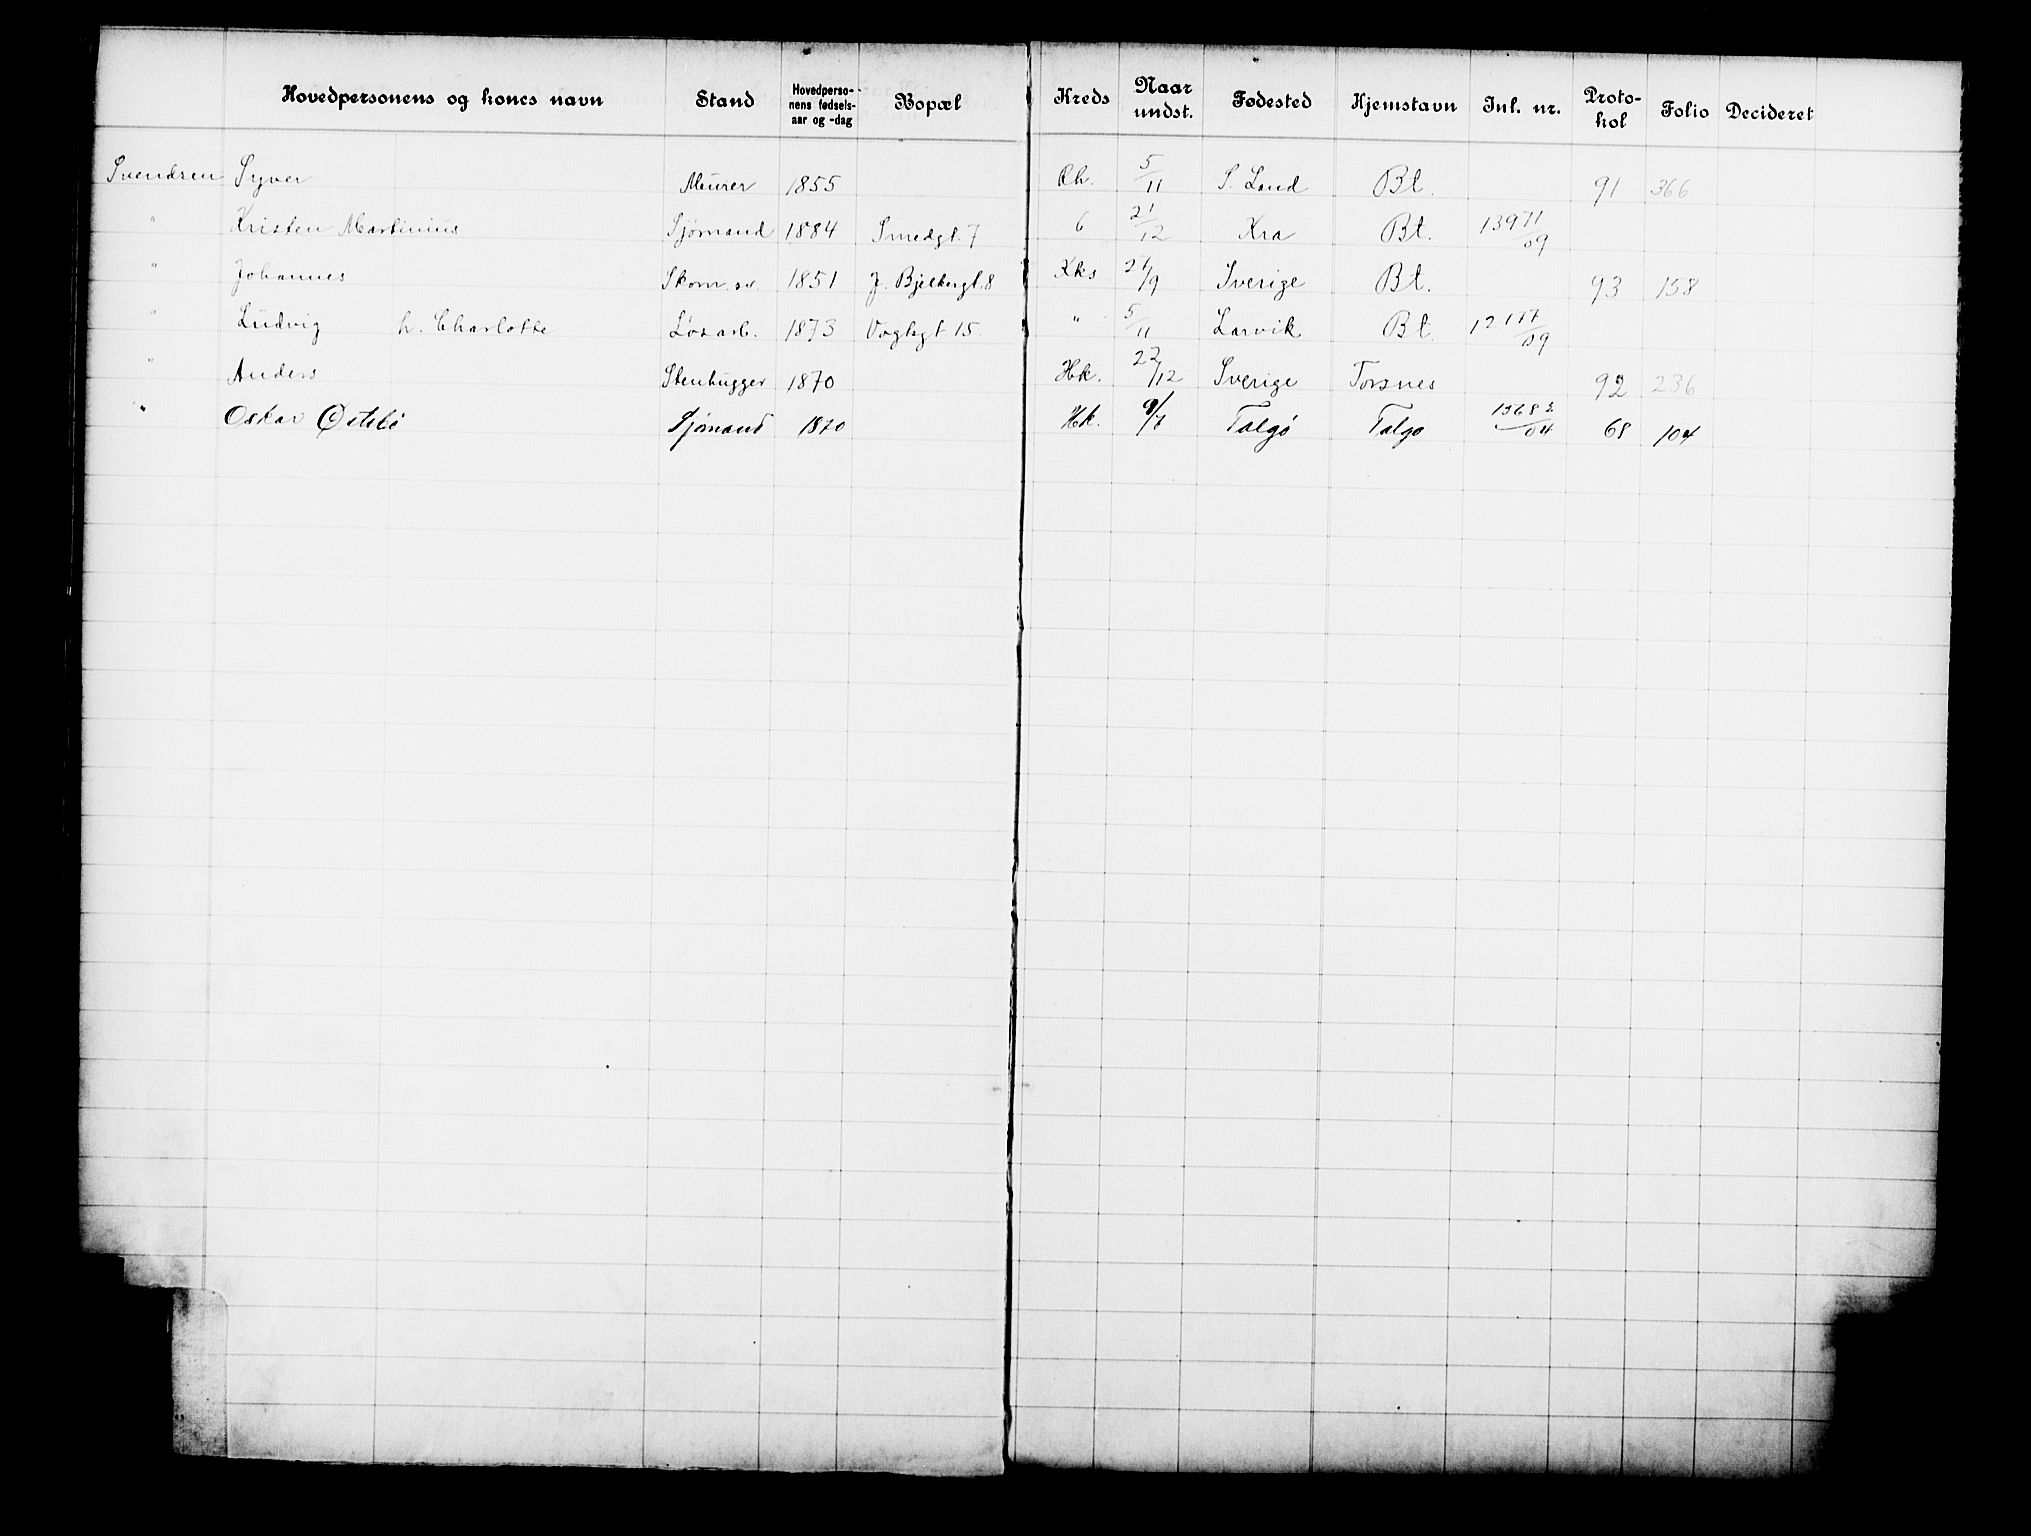 Hovedpersonens og kones navn Stand Hovedperso-nens fødsels-aar og -dag Bopæl Kreds Naar undst. Fødested Hjemstavn Inl. nr. Proto-kol Folio Decideret
Svendsen Syver Murer 1855 Rh. 5/11 S. Land Bt. 91 366
" Kristen Martinius Sjømand 1884 Smedgt. 7 6 21/12 Kra Bt. 13971/09
" Johannes Skom. sv. 1851 J. Bjelkesgt. 8 Kks 27/9 Sverige Bt. 93 158
" Ludvig h. Charlotte Løsarb. 1873 Vogtsgt. 15 " 5/11 Larvik Bt. 12177/09
" Anders Stenhugger 1870 Hk. 22/12 Sverige Torsnes 92 236
" Oskar Østebø Sjømand 1870 Hk. Talgø Talgø 15682/04 68 104